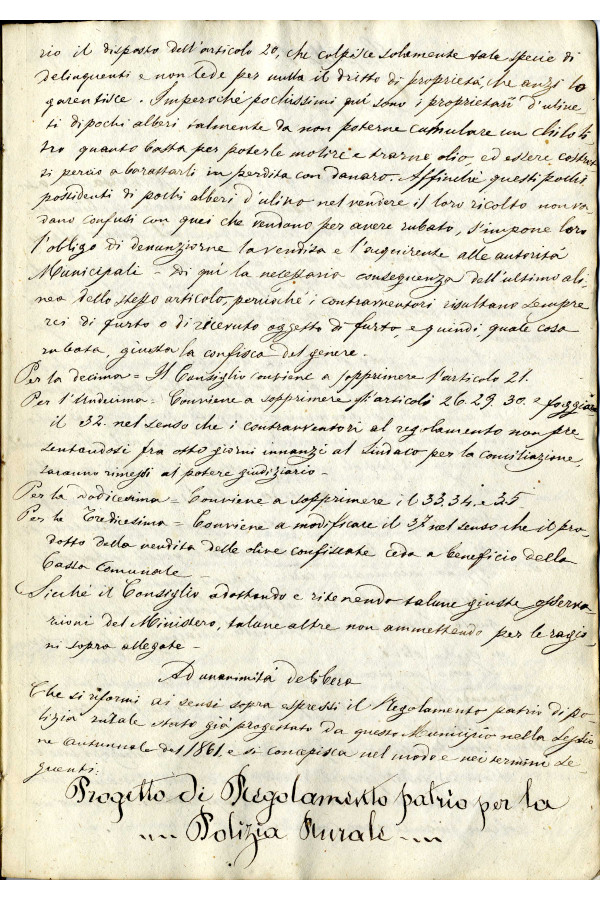 rio il disposto dell'articolo 20, che colpisce solamente tale specie di
delinquenti e non lede per nulla il dritto di proprietà, che anzi lo
garentisce. Imperochè pochissimi qui sono i proprietarî d'ulive
ti di pochi alberi talmente da non poterne cumulare un chiloli
tro quanto basta per poterle molire e trarne olio, ed essere costret
ti perciò a barattarli in perdita con danaro. Affinchè questi pochi
possidenti di pochi alberi d'ulivo nel vendere il loro ricolto non va
dano confusi con quei che vendono per avere rubato, s'impone loro
l'obligo di denunziarne la vendita e l'acquirente alle autorità
Municipali – di qui la necessaria conseguenza dell'ultimo ali
nea dello stesso articolo, perciochè i contravventori risultano sempre
rei di furto o di ricevuto oggetto di furto, e quindi quale cosa
rubata, giusta la confisca del genere.
Per la decima = Il Consiglio conviene a sopprimere l'articolo 21.
Per l'Undecima = Conviene a sopprimere gli articoli 26. 29. 30. e foggiare
il 32. nel senso che i contravventori al regolamento non pre
sentandosi fra otto giorni innanzi al Sindaco per la conciliazione,
saranno rimessi al potere giudiziario –
Per la dodicesima = Conviene a sopprimere il 33. 34. e 35
Per la Tredicesima = Conviene a modificare il 37 nel senso che il pro
dotto della vendita delle olive confiscate ceda a beneficio della
Cassa Comunale –
Sicchè il Consiglio adottando e ritenendo talune giuste osserva
zioni del Ministero, talune altre non ammettendo per le ragio
ni sopra allegate –
Ad unanimità delibera
Che si riformi ai sensi sopra espressi il Regolamento patrio di po
lizia rurale stato già progettato da questo Municipio nella Sessio
ne autunnale del 1861. e si concepisca nel modo e nei termini se
guenti:
Progetto di Regolamento patrio per la
Polizia Rurale